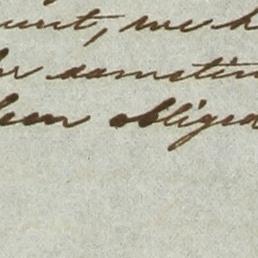 unt, we h
or sometim
been obliged